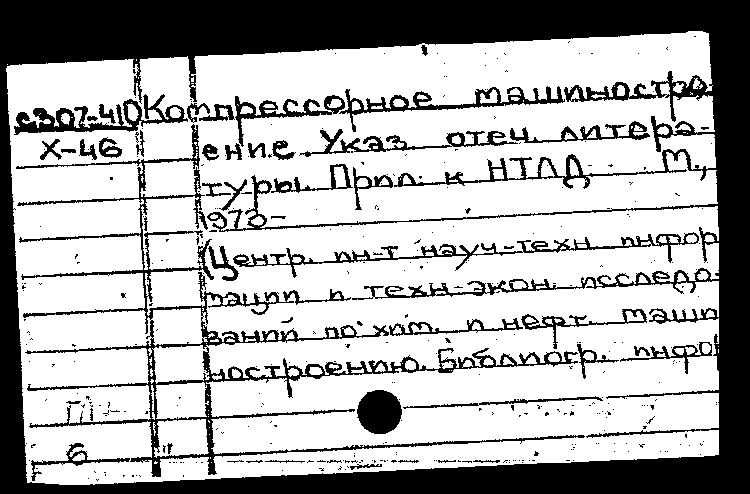 с307-410 Компрессорное машиностро-
Х-46 ение. Указ. отеч. литера-
туры. Прил. к НТЛД. М.,
1973-
(Центр. ин-т науч.-техн. инфор
мации и техн-экон. исследо-
ваний по хим. и нефт. маши
ностроению. Библиогр. инфор
6